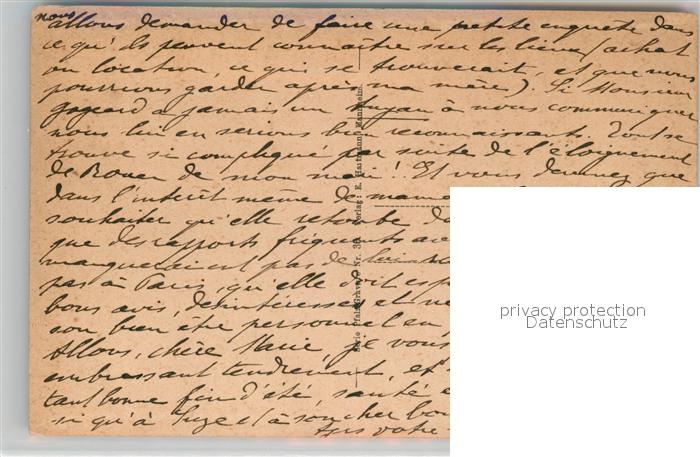 nous
allons demander de faire une petite enquête dans
ce qu'ils peuvent connaître sur les lieux (achat
ou location, ce qui se trouverait, et que nous
pourrions garder après ma mère). Si Monsieur
a jamais un tuyau à nous communiquer
nous lui en serions bien reconnaissants. Tout se
trouve si compliqué par suite de l'éloignement
de Rouen de mon mari! Et vous devinez que
dans l'intérêt même de
souhaiter qu'elle retombe
que des rapports fréquents
manqueraient pas de
pas à Paris, qu'elle doit
bons avis, désintéressés et
son bien être personnel en
Allons, chère Marie, je vous
embrassant tendrement, et
tant bonne fin d'été, santé
si qu'à Suze et à son cher
votre
Serie Pfalz Gravur Nr. 36. Verlag: E. Hartmann, Mannheim.
privacy protection
Datenschutz